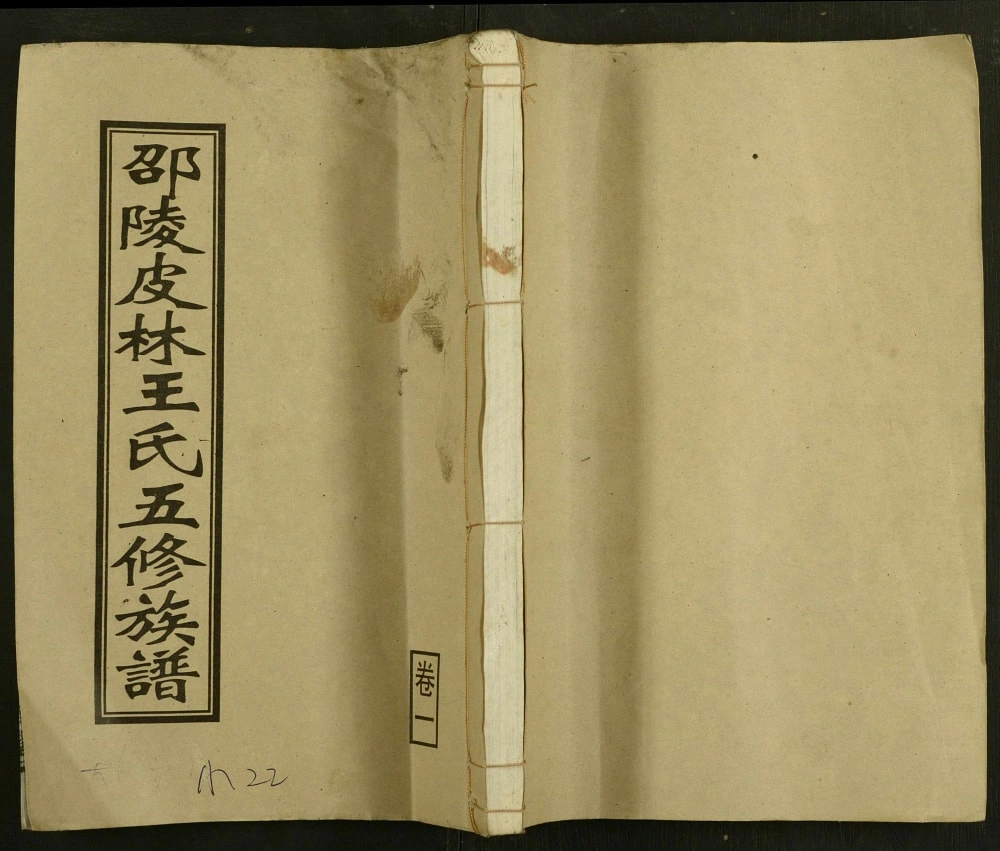 邵陵皮林王氏五修族譜
卷一
22